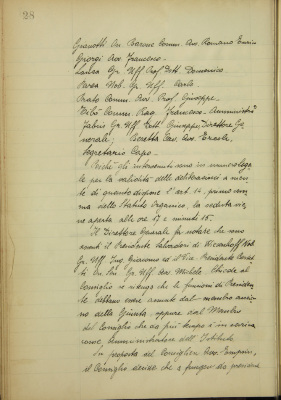 28
Gianotti On. Barone Comm. Avv. Romano Enrico
Giorgi Avv. Francesco -
Lauro Gr. Uff. Prof. Dott. Domenico
Perea Nob. Gr. Uff. Carlo -
Prato Comm. Avv. Prof. Giuseppe -
Comm. Rag. Francesco - Amministrat
Fabris Gr. Uff. Dott. Giuseppe, Direttore Ge
nerale; Beretta Cav. Avv. Ercole,
Segretario Capo -
Poichè gli intervenuti sono in numero lega
le per la validità delle deliberazioni a men
te di quanto dispone l'art. 14, primo com
ma dello Statuto organico, la seduta vie
ne aperta alle ore 17 e minuti 15.
Il Direttore Generale fa notare che sono
assenti il Presidente Salvadori di Wiesenhoff Nob.
Gr. Uff. Ing. Giacomo ed il Vice Presidente
On. Gr. Uff. Avv. Michele. Chiede al
Consiglio se ritenga che le funzioni di Presiden
te debbano essere assunte dal membro anzia
no della Giunta, oppure dal Membro
del Consiglio che da più tempo è in carica
come Amministratore dell'Istituto.
Su proposta del Consigliere Avv.
il Consiglio decide che a fungere da presidente